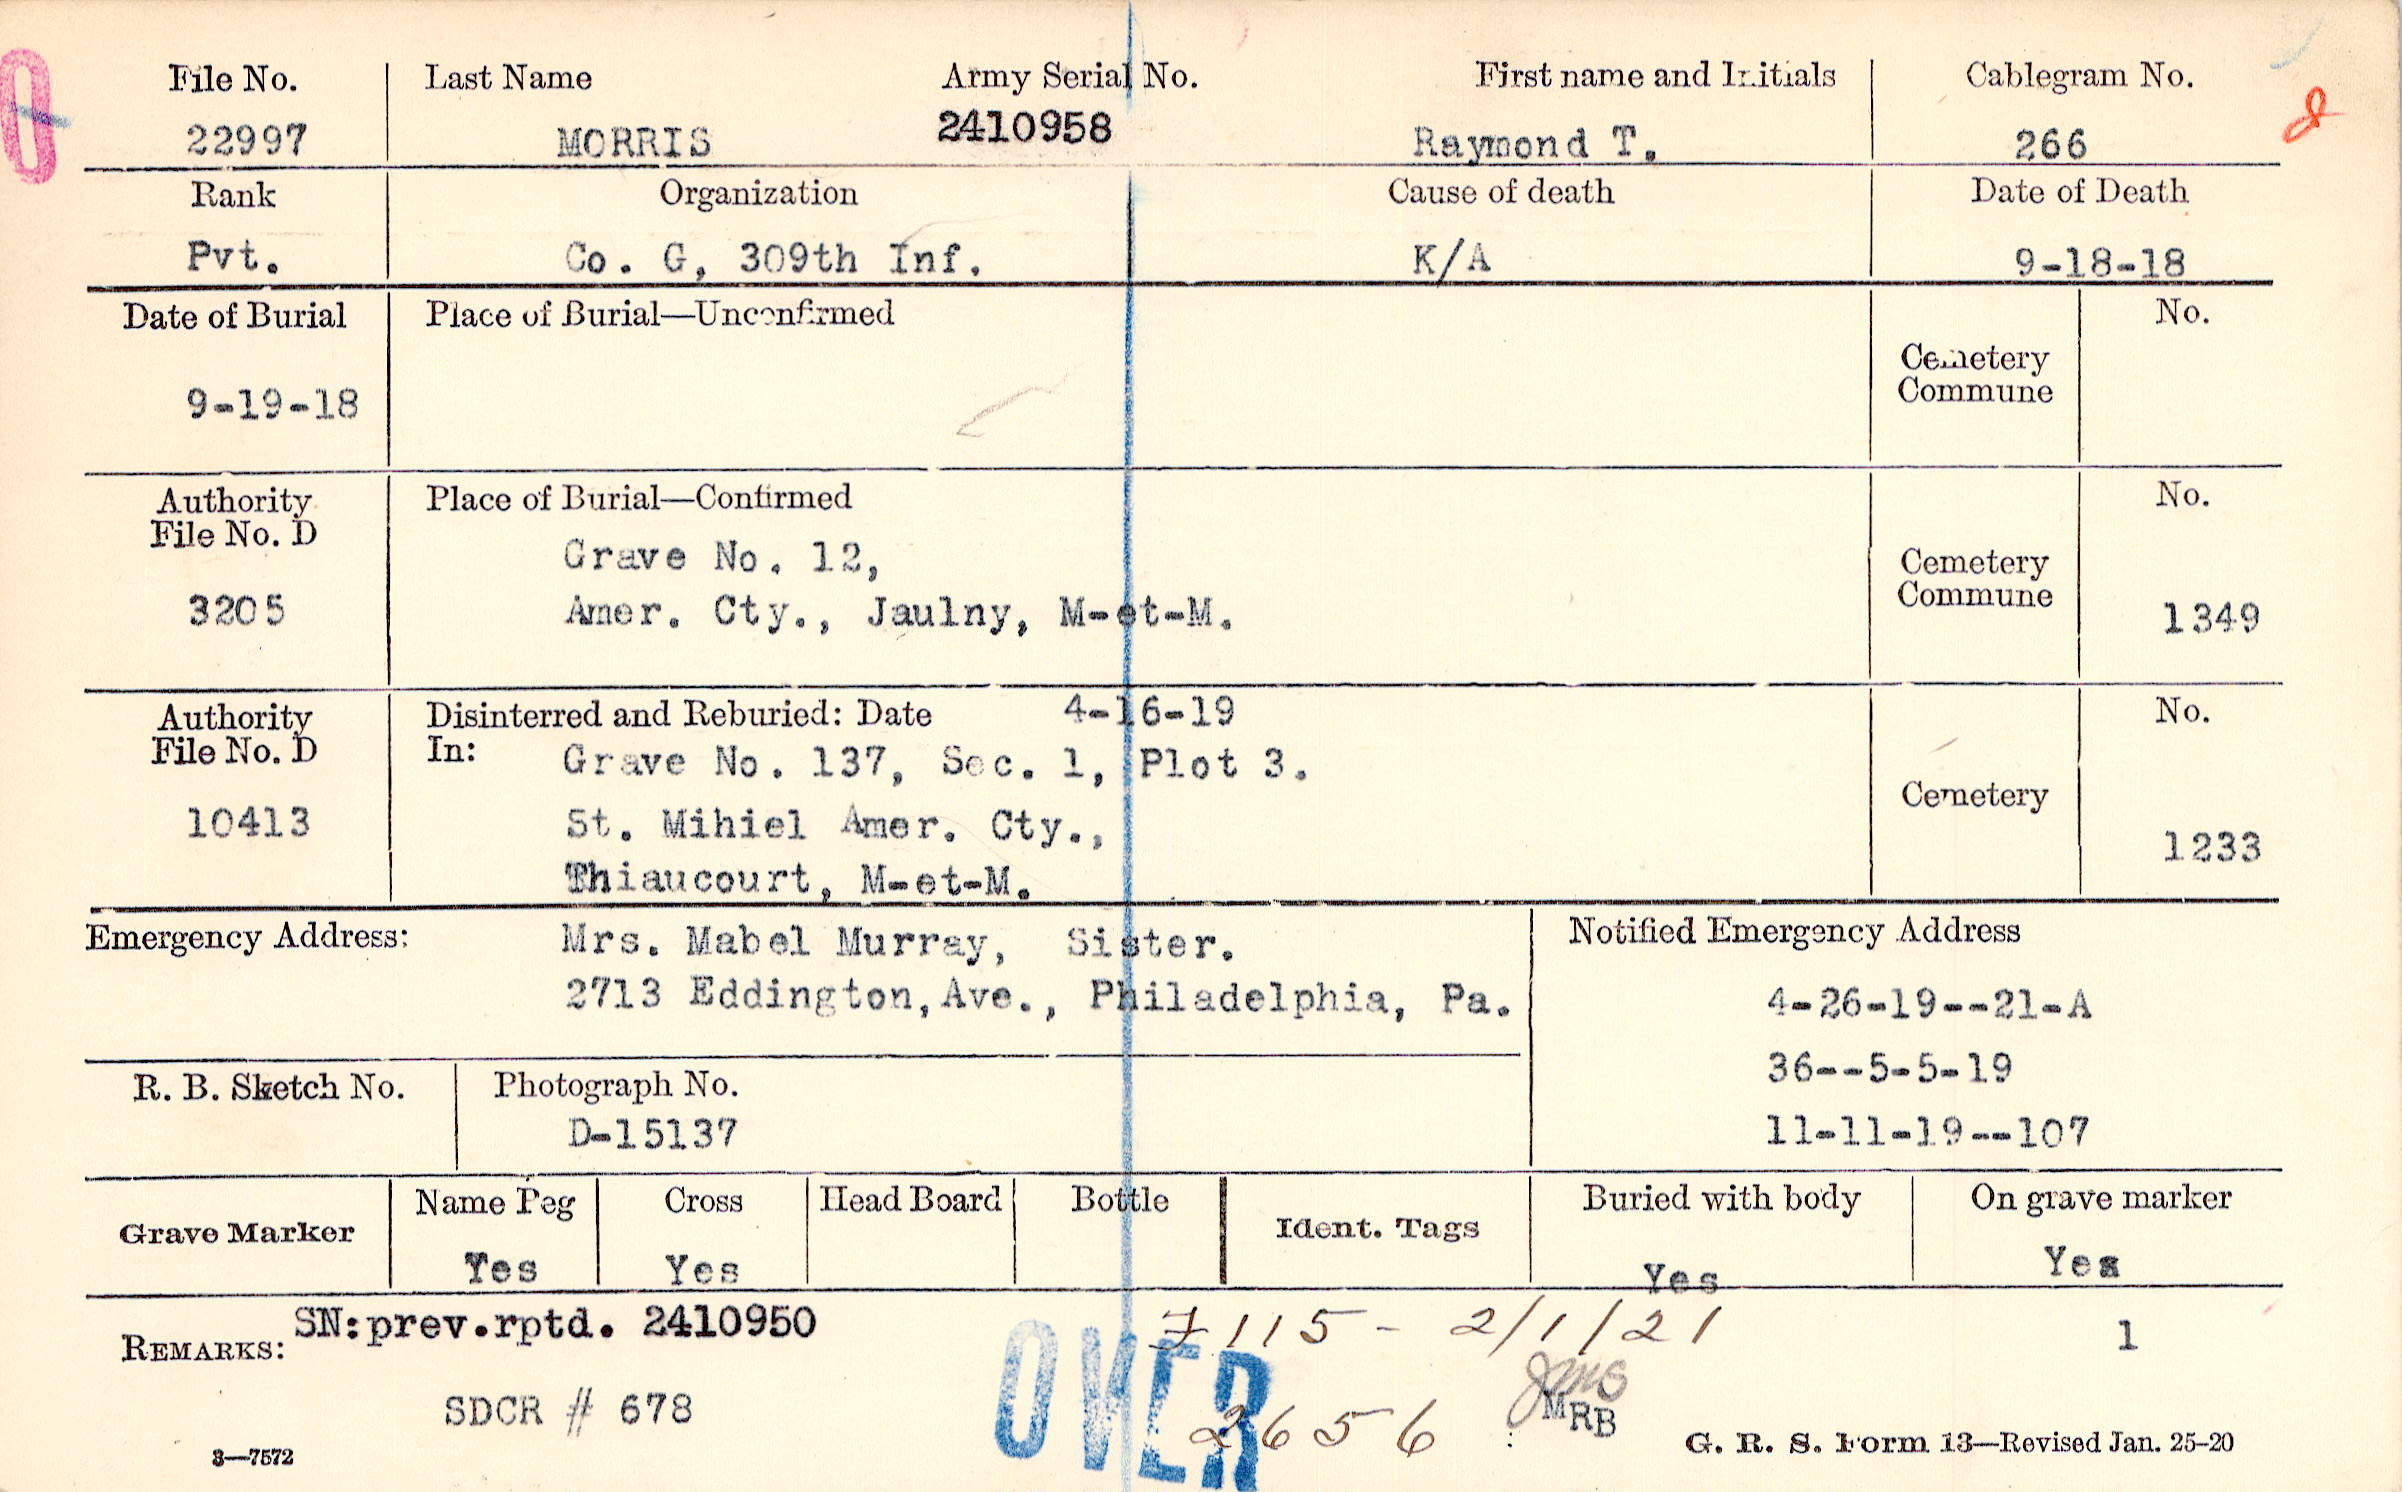 File No. Last Name Army Serial No. First name and Initials Cablegram No.
22997 MORRIS 2410958 Raymond T. 266
Rank Organization Cause of death Date of Death
Pvt. Co. G, 309th Inf. K/A 9-18-18
Date of Burial Place of Burial—Unconfirmed No.
Cemetery
Commune
9-19-18
Authority Place of Burial—Confirmed No.
File No. D
Grave No. 12,
Cemetery
Commune
3205 Amer. Cty., Jaulny, M-et-M. 1349
Authority Disinterred and Reburied: Date 4-16-19 No.
File No. D In: Grave No. 137, Sec. 1, Plot 3.
Cemetery
10413 St. Mihiel Amer. Cty.,
1233
Thiaucourt, M-et-M.
Emergency Address: Mrs. Mabel Murray, Sister. Notified Emergency Address
2713 Eddington, Ave., Philadelphia, Pa. 4-26-19--21-A
36--5-5-19
R. B. Sketch No. Photograph No.
D-15137 11-11-19--107
Grave Marker Name Peg Cross Head Board Bottle Ident. Tags Buried with body On grave marker
Yes Yes Yes Yes
REMARKS: SN:prev.rptd. 2410950 115 - 2/1/21 1
SDCR # 678 OVER 2656 MRB
3—7572 G. R. S. Form 13—Revised Jan. 25-20